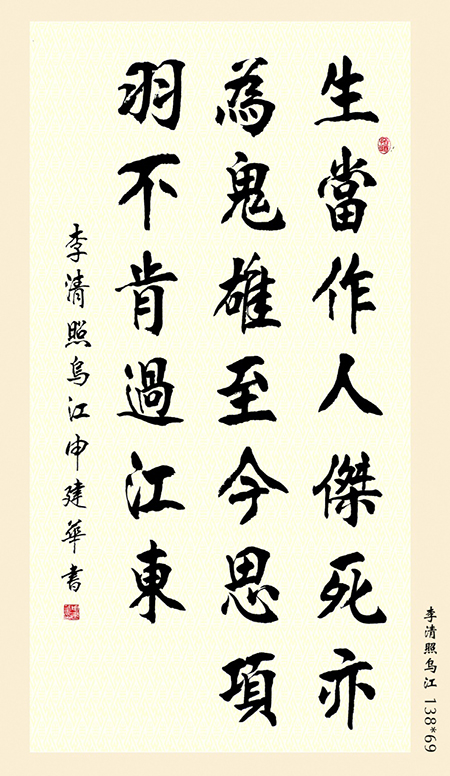 生當作人傑死亦
為鬼雄至今思項
羽不肯過江東
李清照烏江申建華書
李清照烏江 138*69